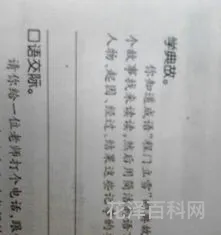 学典故。
你知道成语“程门立雪”
个故事找来读读，然后用简
人物、起因、经过、结果这些
口语交际。
请你给一位老师打个电话，跟
花泽百科网